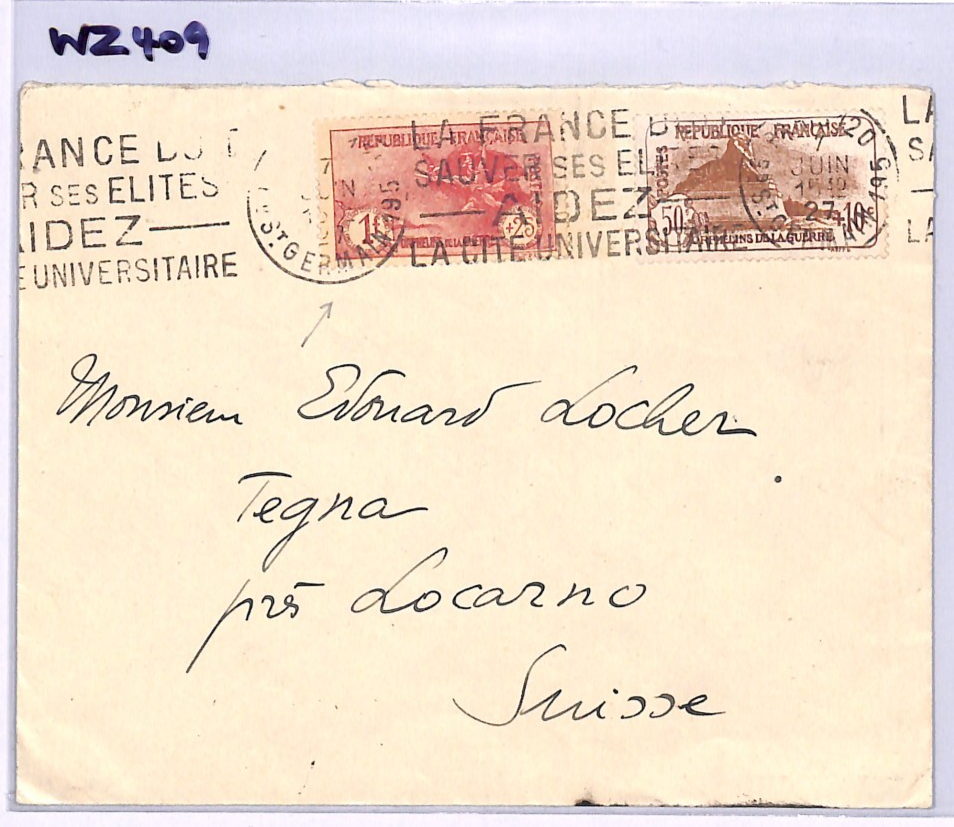 WZ409
RANCE DOIT
R SES ELITES
AIDEZ
E UNIVERSITAIRE
Bd ST GERMAIN 195
REPUBLIQUE FRANÇAISE
1F +25c
ORPHELINS DE LA GUERRE
LA FRANCE D
SAUVER SES ELITES
AIDEZ
LA CITE UNIVERSITAIRE
REPUBLIQUE FRANÇAISE
POSTES
50c +10c
ORPHELINS DE LA GUERRE
JUIN
27
195
LA
SA
LA
Monsieur Edouard Locher
Tegna
près Locarno
Suisse